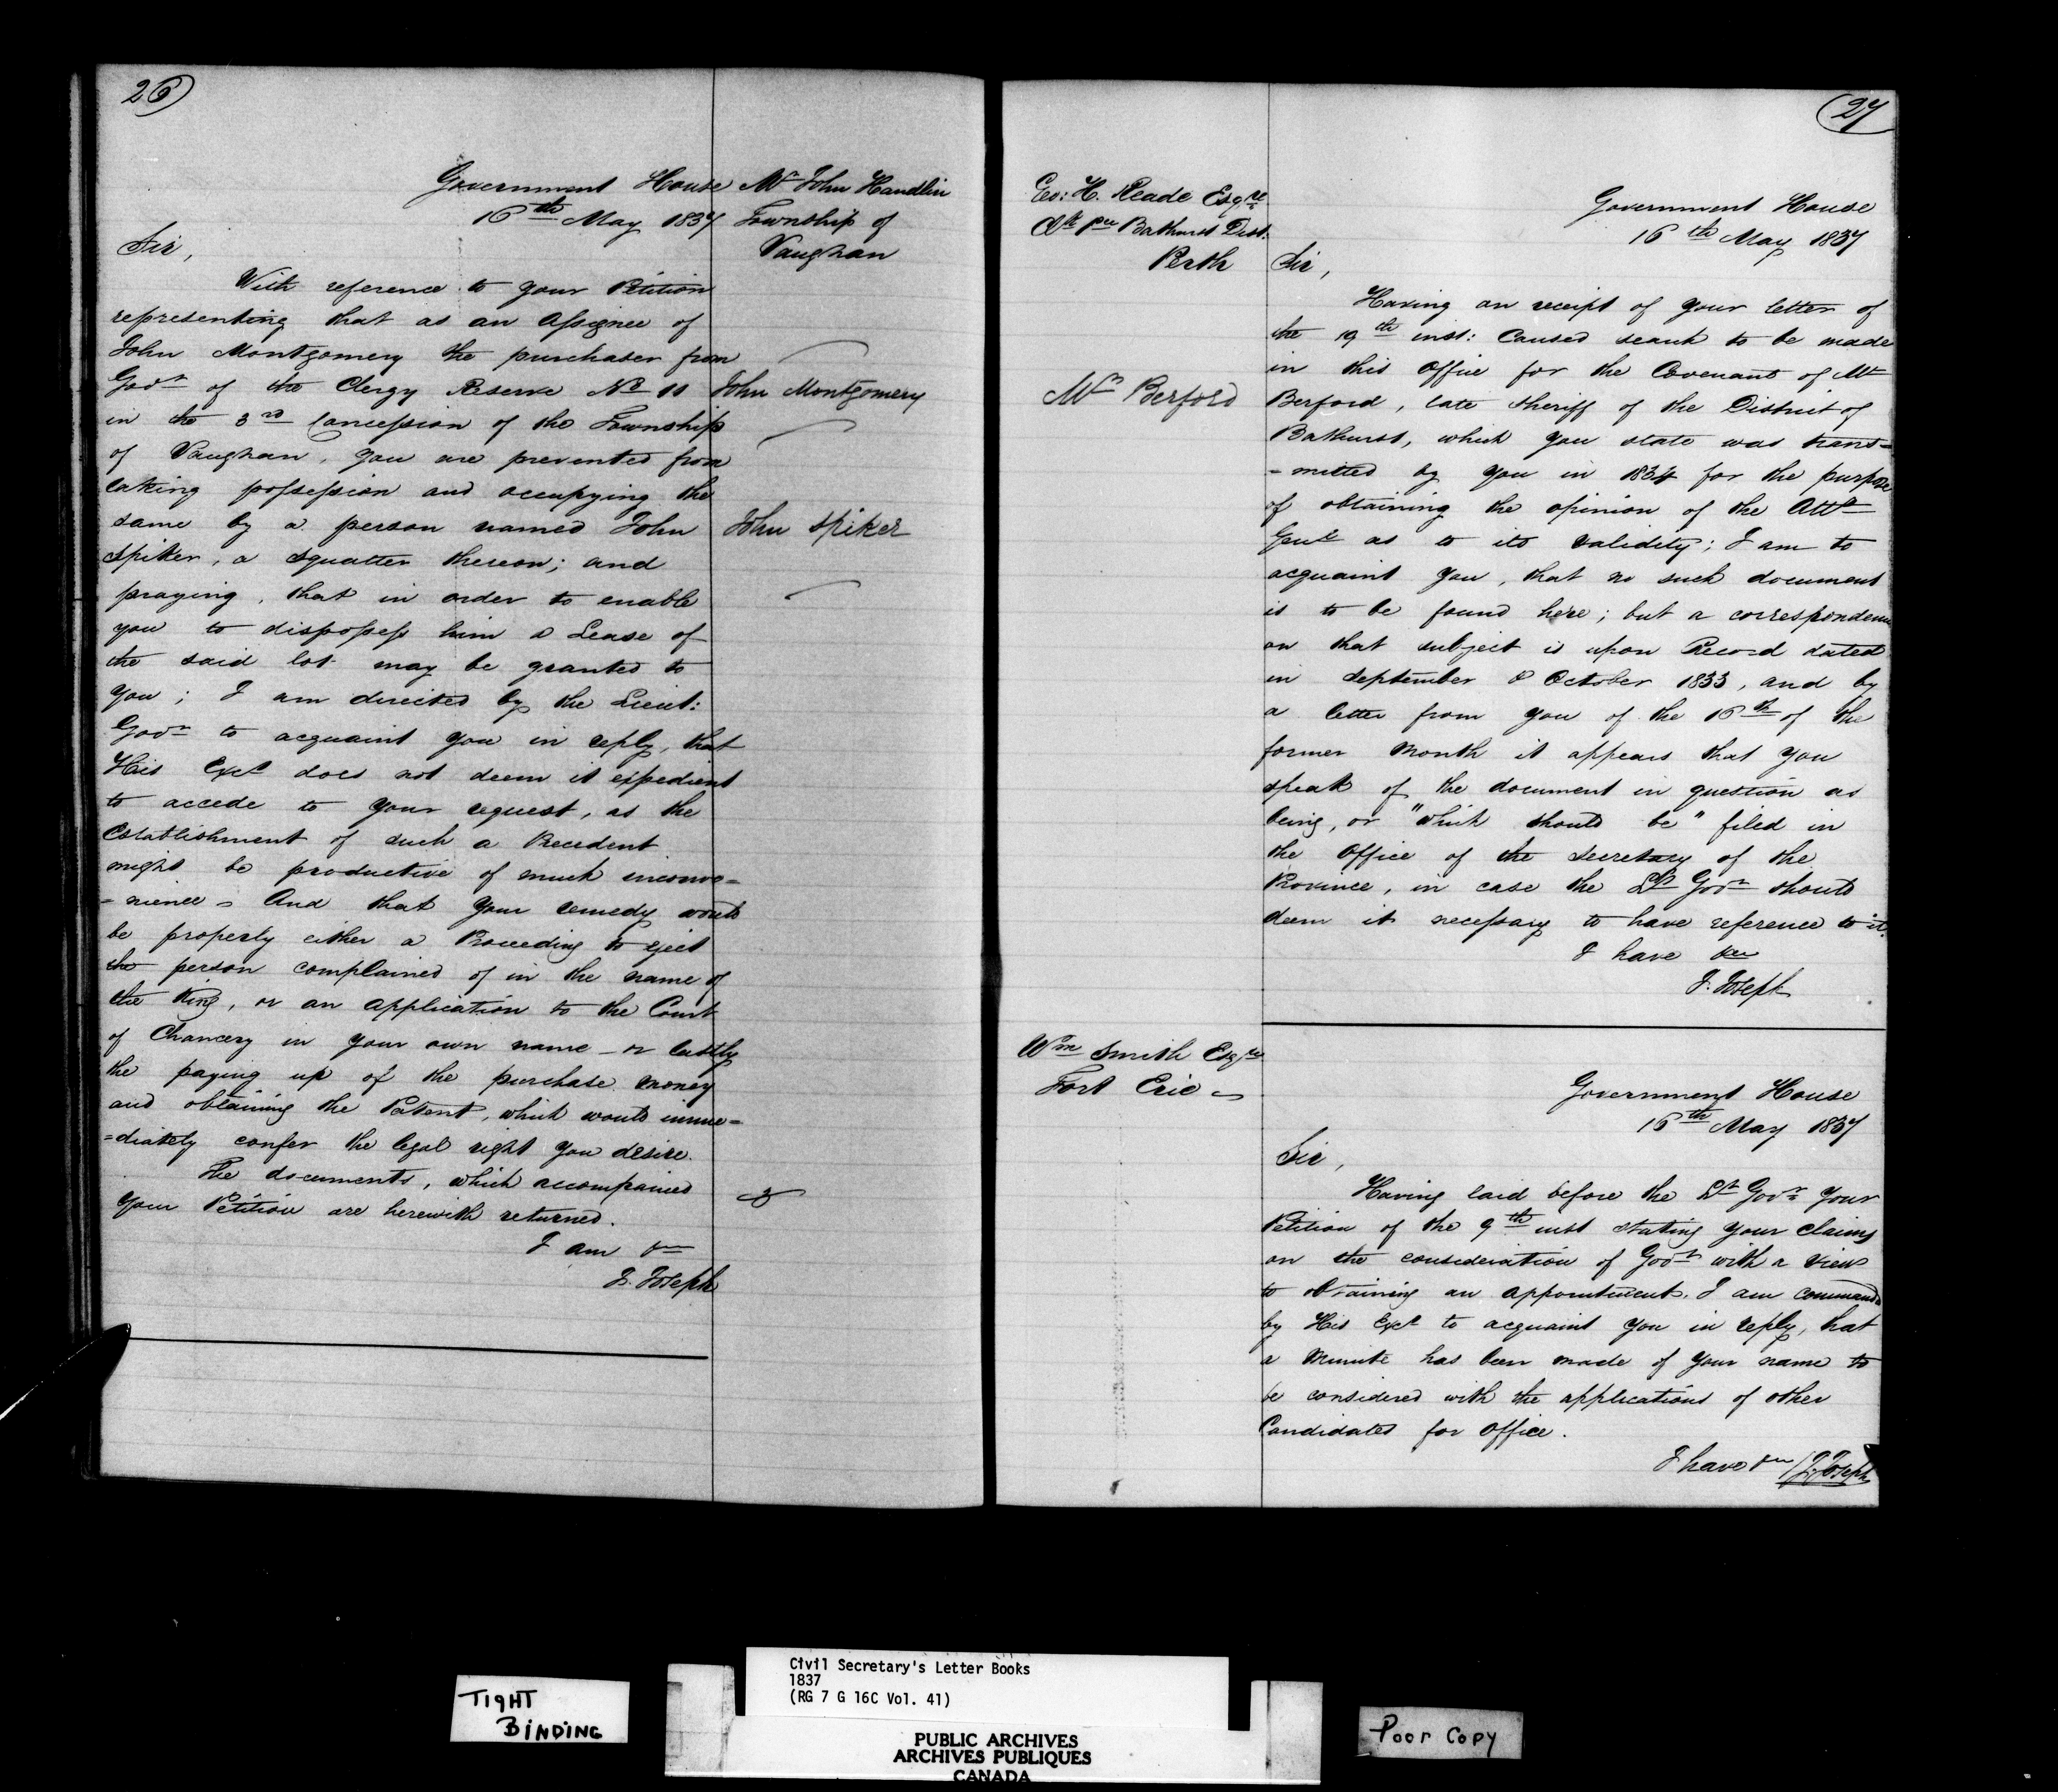 26
Government House
16th May 1837
Mr John Handlin
Township of
Vaughan
Sir,
With reference to your Petition
representing that as an Assignee of
John Montgomery the purchaser from
Govt of the Clergy Reserve No 11
in the 3rd Concession of the Township
of Vaughan, you are prevented from
taking possession and occupying the
same by a person named John
Spiker, a Squatter thereon; and
praying, that in order to enable
you to dispossess him a Lease of
the said lot may be granted to
you; I am directed by the Lieut:
Govr to acquaint you in reply, that
His Excy does not deem it expedient
to accede to your request, as the
Establishment of such a Precedent
might be productive of much inconve=
=nience – And that your remedy would
be properly either a Proceeding to eject
the person complained of in the name of
the King, or an application to the Court
of Chancery in your own name – or lastly
the paying up of the purchase money
and obtaining the Patent, which would imme=
=diately confer the legal right you desire.
The documents, which accompanied
your Petition are herewith returned.
I am &c
J. Joseph
John Montgomery
John Spiker
27
Geo: H. Reade Esqre
Clk Pce Bathurst Dist.
Perth
Government House
16th May 1837
Sir,
Having on receipt of your letter of
the 19th inst: Caused search to be made
in this Office for the Covenant of Mr
Berford, late Sheriff of the District of
Bathurst, which you state was trans=
=mitted by you in 1834 for the purpose
of obtaining the opinion of the Atty
Genl as to its validity; I am to
acquaint you, that no such document
is to be found here; but a correspondence
on that subject is upon Record dated
in September & October 1833, and by
a letter from you of the 16th of the
former Month it appears that you
speak of the document in question as
being, or "which should be" filed in
the Office of the Secretary of the
Province, in case the Lt Govr should
deem it necessary to have reference to it.
I have &c
J. Joseph
Mr Berford
Wm Smith Esqre
Fort Erie
Government House
16th May 1837
Sir,
Having laid before the Lt Govr your
Petition of the 9th inst stating your claims
on the consideration of Govt with a view
to obtaining an appointment, I am commanded
by His Excy to acquaint you in reply, that
a Minute has been made of your name to
be considered with the applications of other
Candidates for Office.
I have &c J. Joseph
TIGHT
BINDING
Civil Secretary's Letter Books
1837
(RG 7 G 16C Vol. 41)
PUBLIC ARCHIVES
ARCHIVES PUBLIQUES
CANADA
Poor Copy